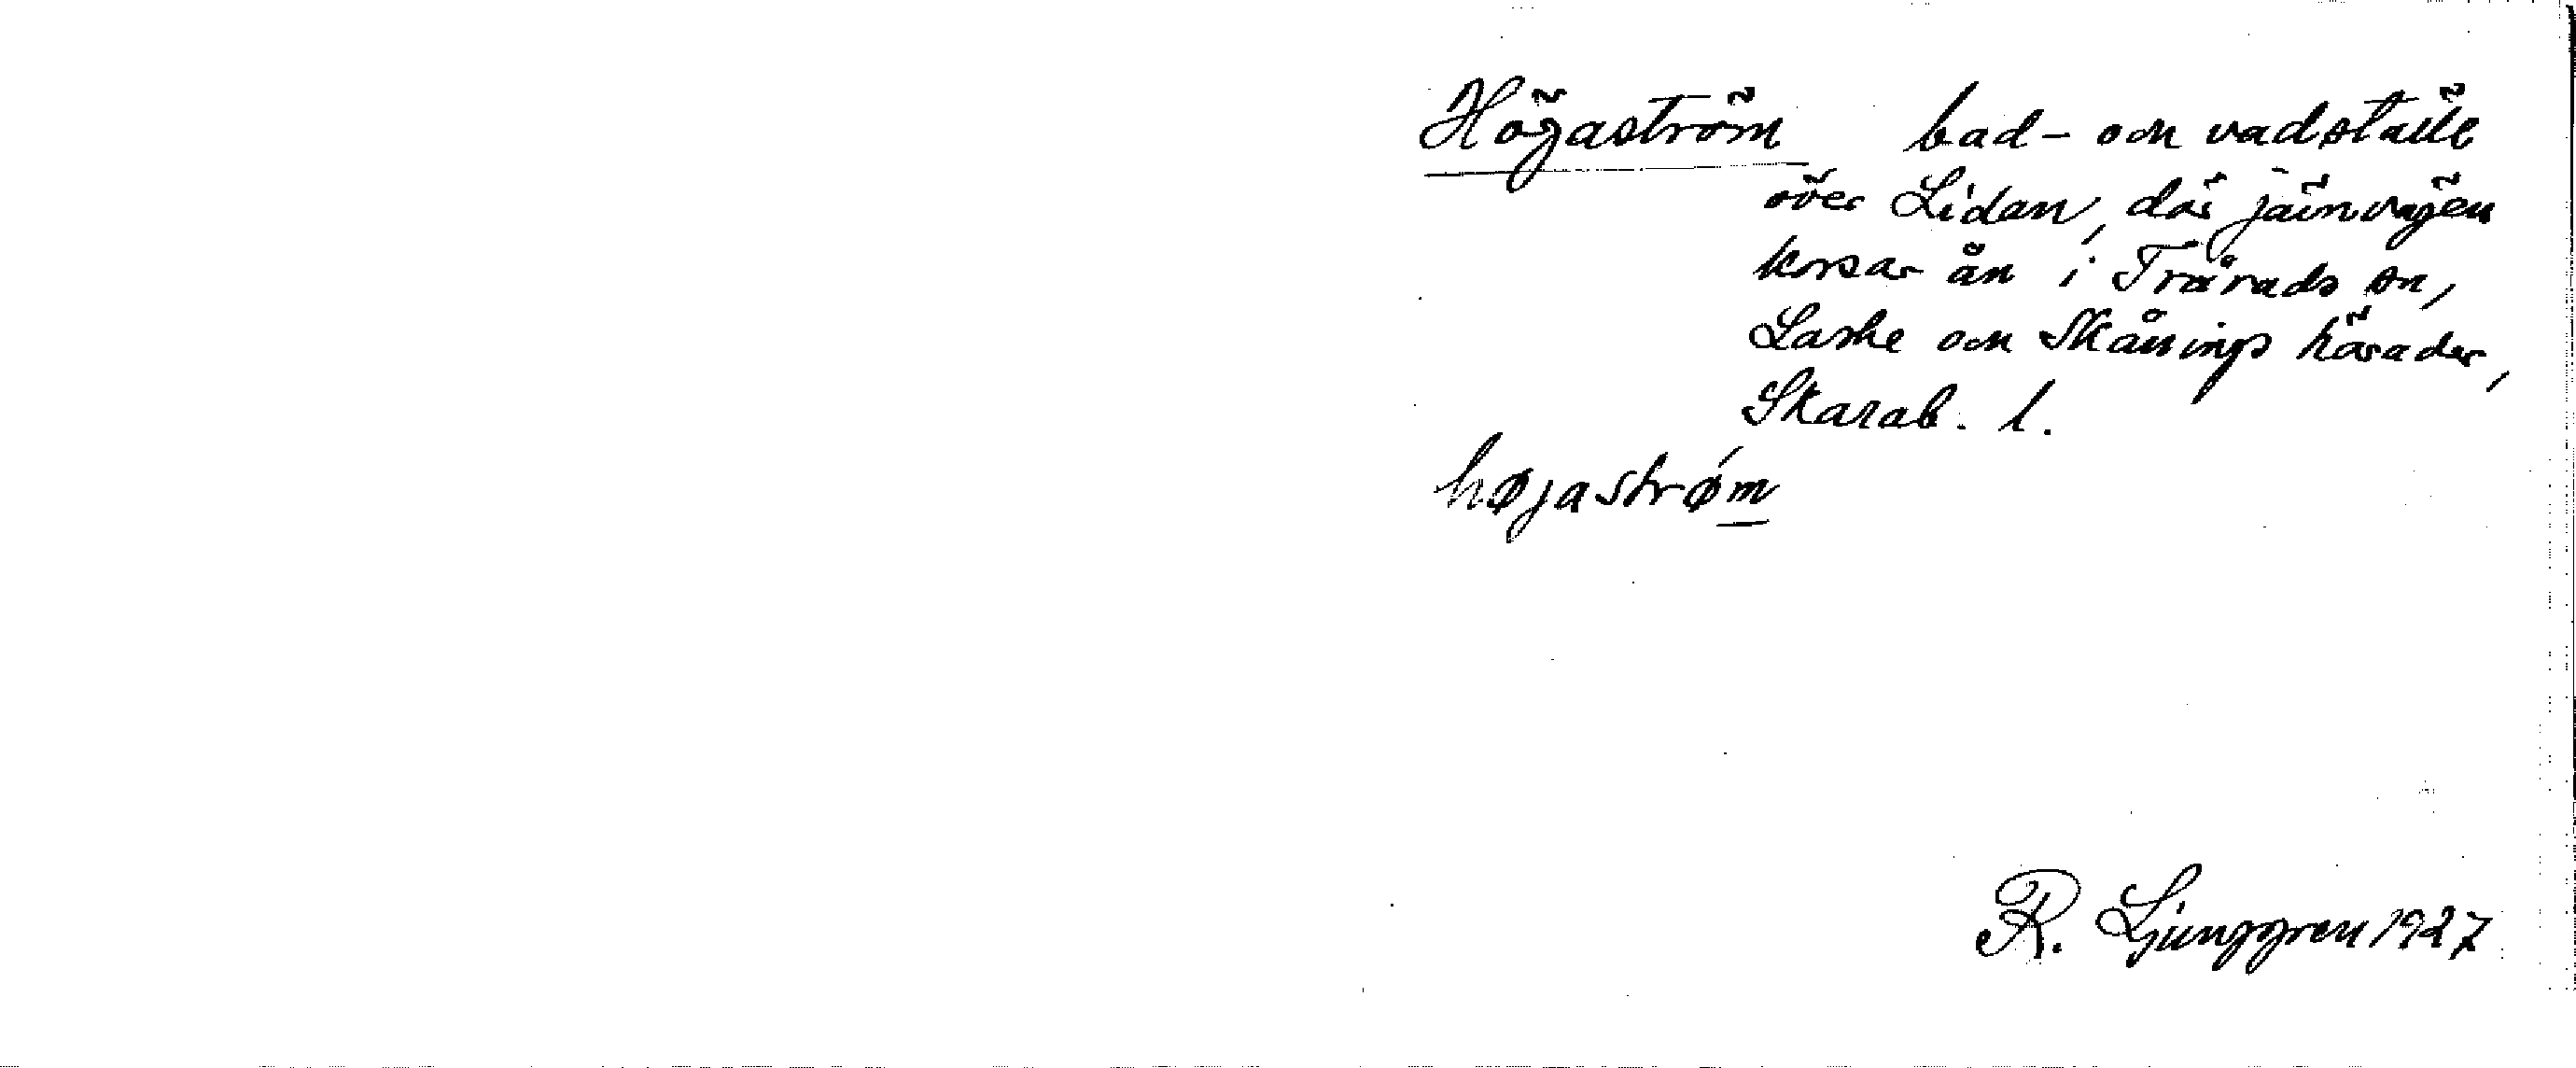 Högaström bad- och vadställe
över Lidan, där järnvägen
korsar ån i Trävads sn,
Laske och Skånings härader,
Skarab. l.
høgaströ́m
R. Ljunggren 1927